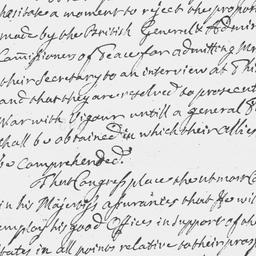 hesitate a moment to reject the propos
made by the British Generals & Admir
Commissioners of peace for admitting Mr
their Secretary to an interview at Phi
and that they are resolved to prosecut
War with Vigour untill a general P
shall be obtained in which their Allies
be comprehended.
That Congress place the utmost Co
in his Majesty's assurances that He wil
employ his good Offices in support of th
States in all points relative to their pros